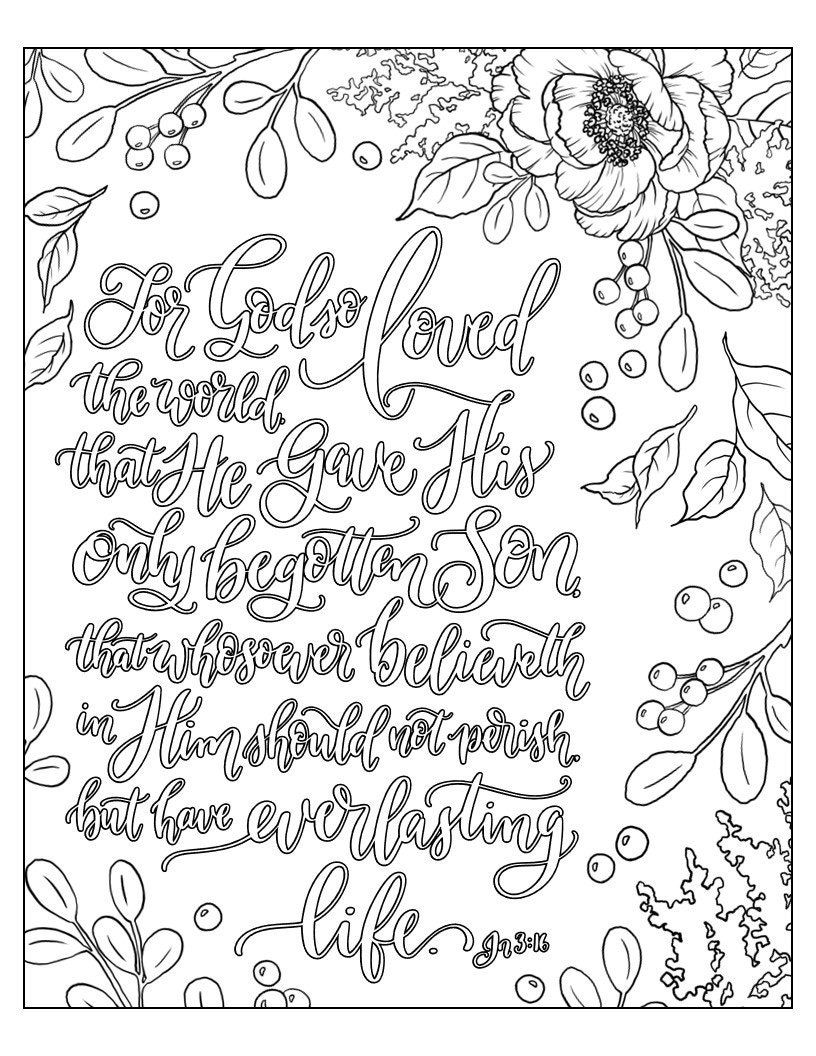 For God so loved
the world,
that He Gave His
only begotten Son,
that whosoever believeth
in Him should not perish,
but have everlasting
life. Jn 3:16